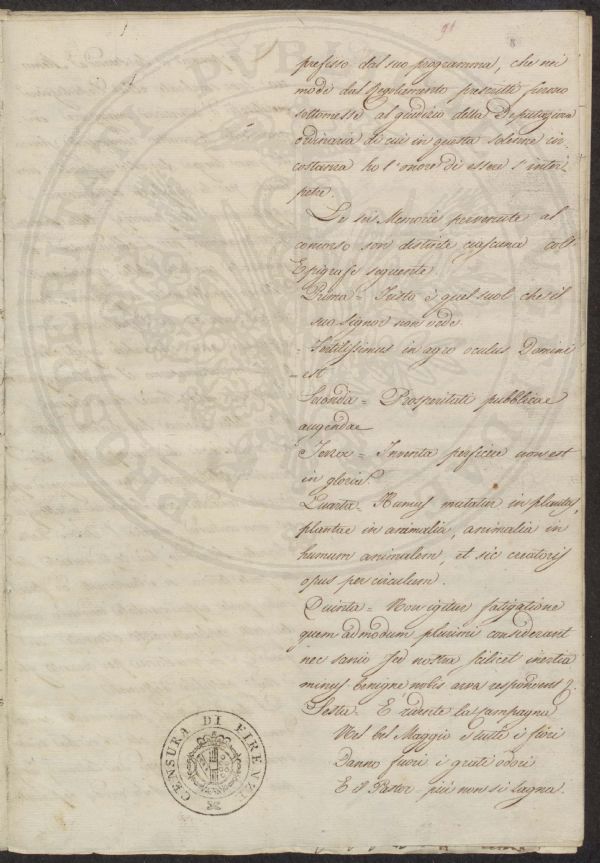 91
8
presesso dal suo programma, che nei
modi dal Regolamento prescritti furono
sottomesse al giudizio della Deputazione
ordinaria di cui in questa solenne cir-
costanza ho l'onore di essere l'inter-
petre.
Le sei Memorie pervenute al
concorso son distinte ciascuna coll'
Epigrafe seguente.
Prima = Tristo è quel suol che il
suo signor non vede.
= Fertilissimus in agro oculus Domini
est
Seconda = Prosperitati pubblicae
augendae
Terza = Inventa perficere non est
in gloria.
Quarta = Humus mutatur in plantas,
plantae in animalia, animalia in
humum animalem, et sic creatoris
opus per circulum.
Quinta = Non igitur fatigatione
quemadmodum plurimi considerant
nec sanio sed nostra scilicet inertia
minus benigne nobis arva respondent
Sesta = È ridente la campagna
Nel bel Maggio e tutti i fiori
Danno fuori i grati odori
E il Pastor più non si lagna.
CENSURA DI FIRENZE
PROSPERITATI PUBLICAE